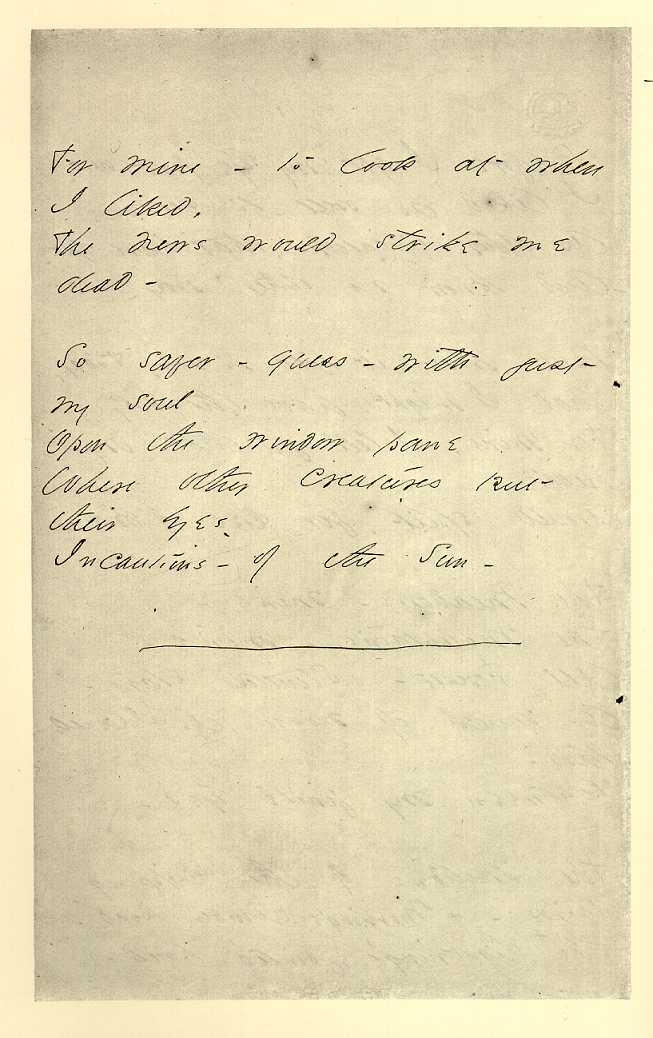 For mine - to look at when
I liked,
The news would strike me
dead -
So safer - guess - with just
my soul
Opon the window pane
Where other creatures put
their eyes
Incautious - of the Sun -